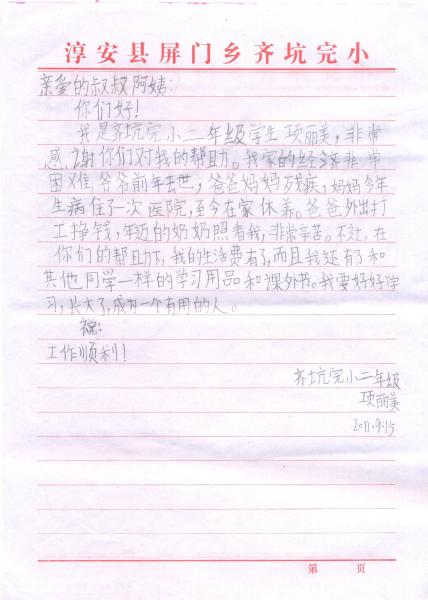 淳安县屏门乡齐坑完小
亲爱的叔叔阿姨：
你们好！
我是齐坑完小二年级学生项丽美，非常
感谢你们对我的帮助。我家的经济非常
困难，爷爷前年去世，爸爸妈妈残疾，妈妈今年
生病住了一次医院，至今在家休养。爸爸外出打
工挣钱，年迈的奶奶照看我，非常辛苦。不过，在
你们的帮助下，我的生活费有了，而且我还有了和
其他同学一样的学习用品和课外书。我要好好学
习，长大了，成为一个有用的人。
祝：
工作顺利！
齐坑完小二年级
项丽美
2011.9.15
第 页